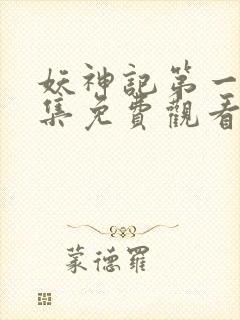 妖神記第一
集免費觀看
蒙德羅